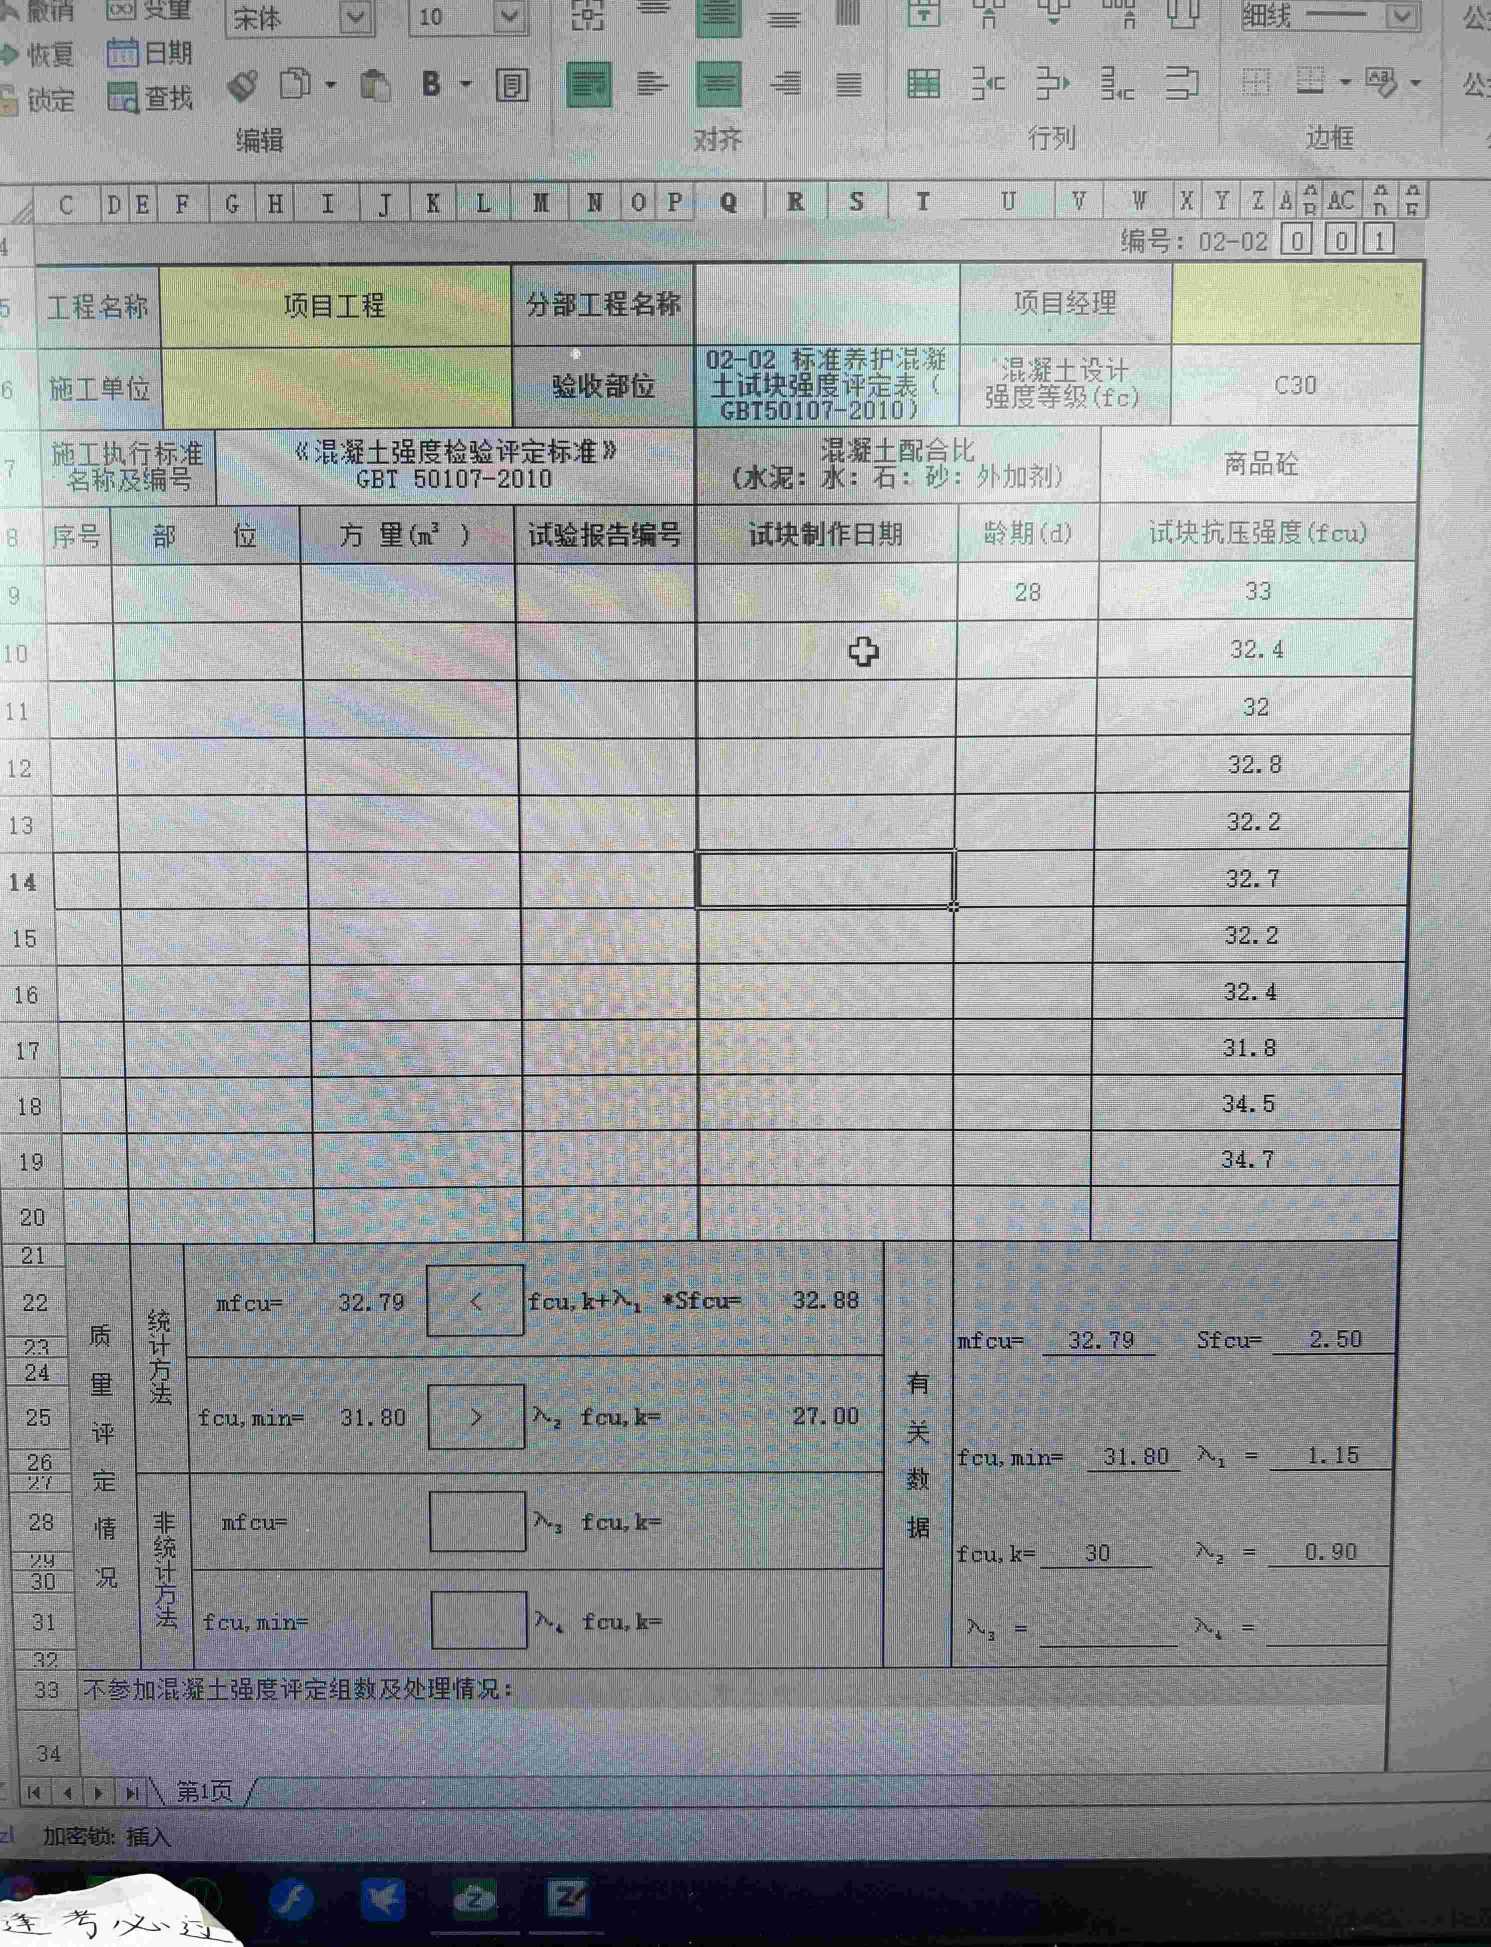 撤消 变量 宋体 10 细线
恢复 日期
锁定 查找 B
编辑 对齐 行列 边框
C D E F G H I J K L M N O P Q R S T U V W X Y Z A AB AC AD AE
4 编号: 02-02 0 0 1
5 工程名称 项目工程 分部工程名称 项目经理
6 施工单位 验收部位 02-02 标准养护混凝土试块强度评定表（GBT50107-2010） 混凝土设计强度等级(fc) C30
7 施工执行标准名称及编号 《混凝土强度检验评定标准》 GBT 50107-2010 混凝土配合比 (水泥: 水: 石: 砂: 外加剂) 商品砼
8 序号 部 位 方 里(m³ ) 试验报告编号 试块制作日期 龄期(d) 试块抗压强度(fcu)
9 28 33
10 32.4
11 32
12 32.8
13 32.2
14 32.7
15 32.2
16 32.4
17 31.8
18 34.5
19 34.7
20
21
22 mfcu= 32.79 < fcu,k+λ₁ *Sfcu= 32.88
23 mfcu= 32.79 Sfcu= 2.50
24
25 fcu,min= 31.80 > λ₂ fcu,k= 27.00
26 fcu,min= 31.80 λ₁ = 1.15
27
28 mfcu= λ₃ fcu,k=
29 fcu,k= 30 λ₂ = 0.90
30
31 fcu,min= λ₄ fcu,k=
λ₃ = λ₄ =
32
质量评定情况
统计方法
非统计方法
有关数据
33 不参加混凝土强度评定组数及处理情况:
34
第1页
加密锁: 插入
逢考必过